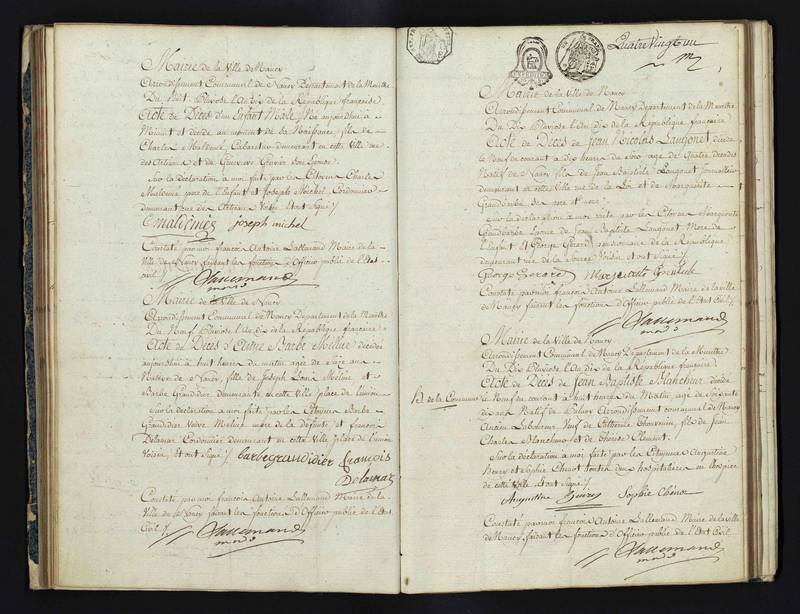 Mairie de la Ville de Nancy
Arrondissement Communal de Nancy Département de la Meurthe
Du huit Pluviose l'An dix de la République française
Acte de Décès d'un Enfant Male Né aujourd'hui a
Minuit et décédé au moment de la Naissance, fils de
Charles Maldemé Cabaretier demeurant en cette Ville rue
des Artisans et de son Epouse
Sur la déclaration a moi faite par les Citoyens Charles
Maldemé pere de l'Enfant et Joseph Michel Cordonnier
demeurant rue des Artisans Voisin Et ont Signé /
C maldemés joseph michel
Constaté par moi françois Antoine Lallemand Maire de la
Ville de Nancy faisant les fonctions d'Officier public de l'Etat
civil /
Lallemand
Mairie de la Ville de Nancy
Arrondissement Communal de Nancy Département de la Meurthe
Du Neuf Pluviose l'An dix de la République française
Acte de Décès d'Anne Barbe Méline décédée
aujourd'hui a huit heures du matin agée de
Native de Nancy, fille de Joseph Louis Méline et
Barbe Grandidier demeurante en cette Ville place de
Sur la déclaration a moi faite par les Citoyens Barbe
Grandidier Veuve Méline mere de la défunte et françois
Delamar Cordonnier demeurant en cette Ville place de
Voisin, Et ont Signé / barbe grandidier François
Delamar
Constaté par moi françois Antoine Lallemand Maire de la
Ville de Nancy faisant les fonctions d'Officier public de l'Etat
Civil /
Lallemand
Quatre Vingt un
Mairie de la Ville de Nancy
Arrondissement Communal de Nancy Département de la Meurthe
Du Dix Pluviose l'An dix de la République française
Acte de Décès de Jean Nicolas Laugonet décédé
le Neuf du courant a dix heures du Soir agé de Quatre décades
Natif de Nancy fils de Jean Baptiste Laugonet journalier
demeurant en cette Ville rue de la Loi et de Marguerite
Sur la déclaration a moi faite par les Citoyens Marguerite
de Jean Baptiste Laugonet Mere de
l'Enfant et George Gerard pensionnaire de la République
demeurant rue de la Voisin et ont Signé /
George Gerard Marguerite
Constaté par moi françois Antoine Lallemand Maire de la ville
de Nancy faisant les fonctions d'Officier public de l'Etat Civil /
Lallemand
Mairie de la Ville de Nancy
Arrondissement Communal de Nancy Département de la Meurthe
Du Dix Pluviose l'An dix de la République française
Acte de Décès de Jean Baptiste Blancheur décédé
le Neuf du courant a huit heures du Matin agé de Soixante
dix ans Natif de arrondissement communal de Nancy
Ancien Laboureur Veuf de Catherine Chouvenin, fils de Jean
Charles Blancheur et de Therese Clement
Sur la déclaration a moi faite par les Citoyennes Augustine
Henry et Sophie Chenot toutes deux hospitalieres en l'hospice
de cette Ville Et ont Signé /
Augustine Henry Sophie Chénot
Constaté par moi françois Antoine Lallemand Maire de la ville
de Nancy, faisant les fonctions d'Officier public de l'Etat Civil
Lallemand